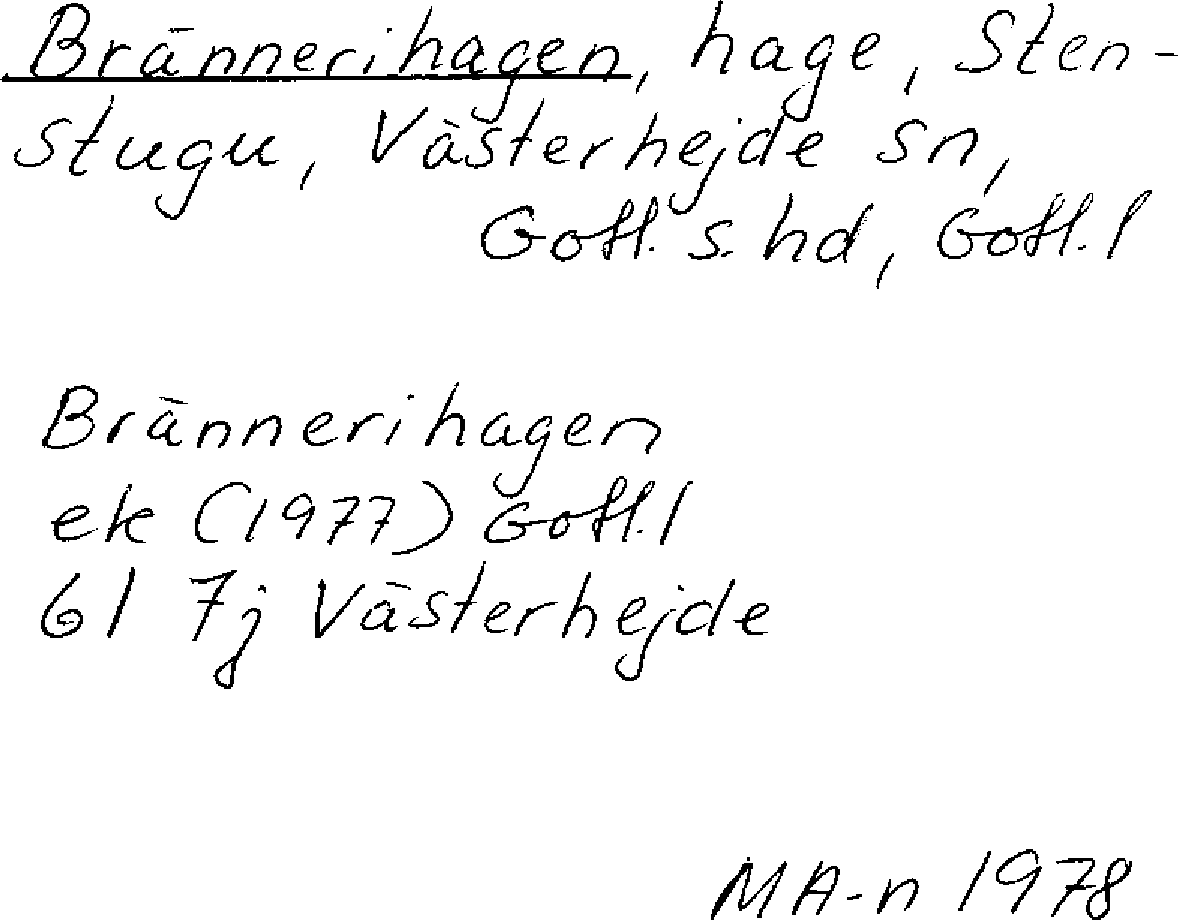 Brännerihagen, hage, Sten-
stugu, Västerhejde sn,
Gotl. s. hd, Gotl. l
Brännerihagen
ek (1977) Gotl. l
6I 7j Västerhejde
MA-n 1978